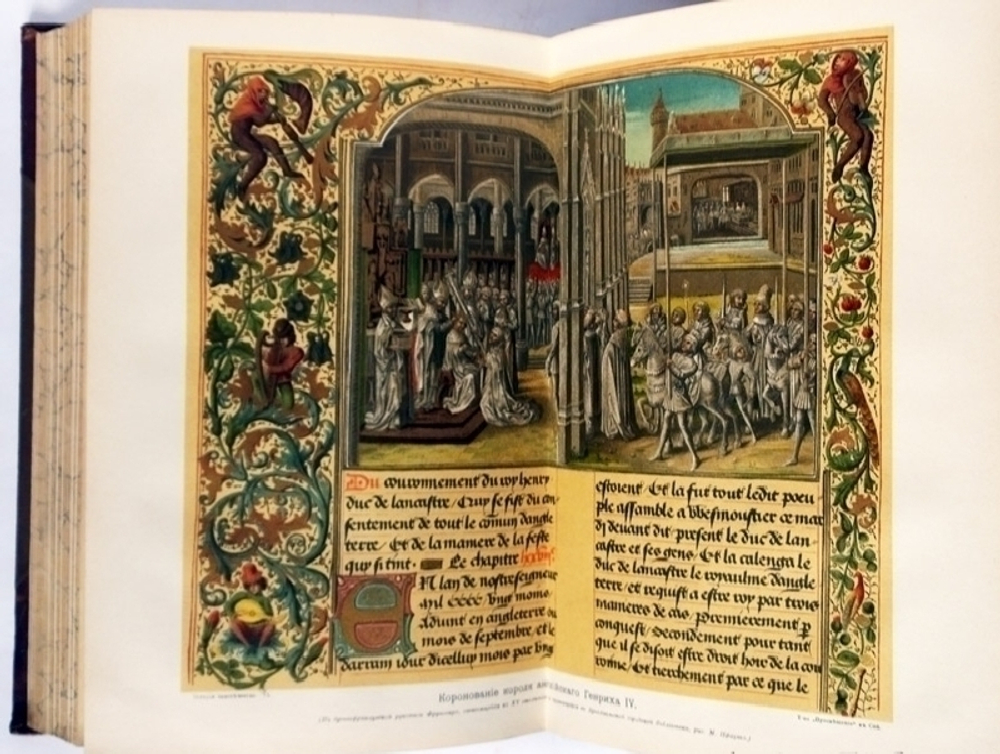 Du couronnement du roy henry
duc de lancastre / Et uy se fist du con
sentement de tout le comun dangle
terre / Et de la maniere de la feste
quy si tint. Le chapitre
En lan de nostre seigneur
mil CCCC vng mois
Adiunt en angleterre
mois de septembre / et le
darrain iour dicelluy mois par vng
estoient / Et la fut tout ledit poeu
ple assamble a Wesmoustier ce mar
di deuant dit / present le duc de lan
castre et ses gens / Et la calenga le
duc de lancastre le royaulme dangle
terre / et requist a estre roy par trois
manieres de cas / Premierement p
conquest / Secondement pour tant
que il se disoit estre droit hoir de la cou
ronne / Et tierchement par ce que le
Коронованіе короля англійскаго Генриха IV.
Т-во „Просвѣщеніе“ въ Спб.